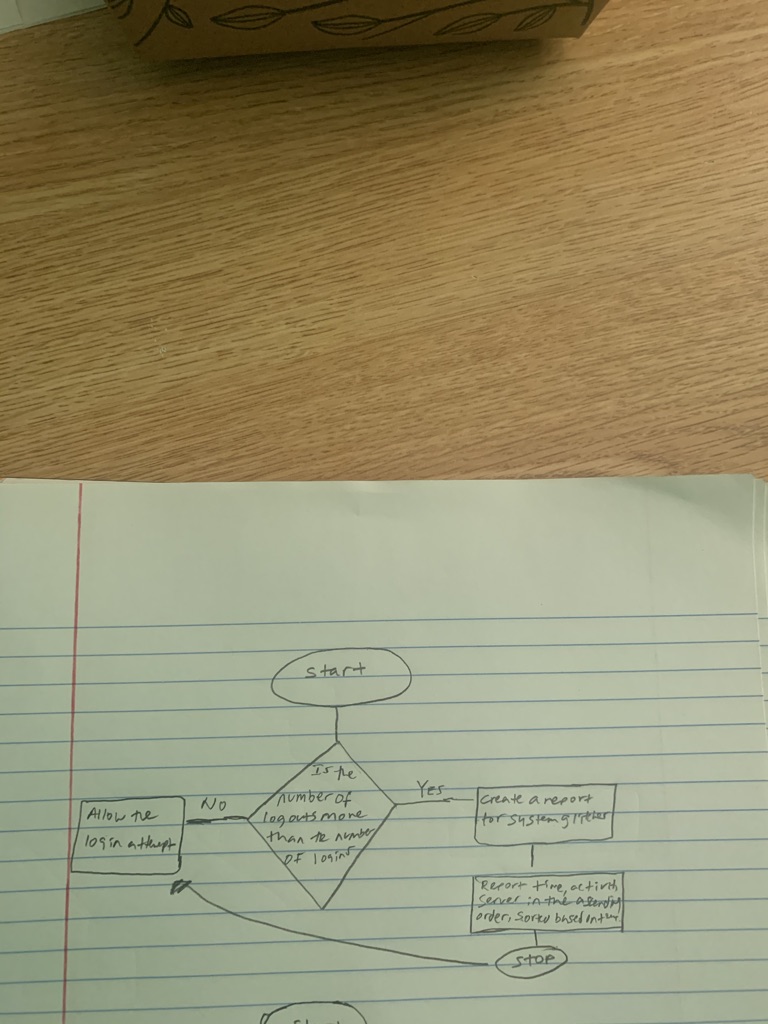 Start
Is the
number of
logouts more
than the number
of logins
NO
Allow the
login attempt
Yes
Create a report
for system glitches
Report time, activity
server in the ascending
order, sorted based on time
STOP
Start